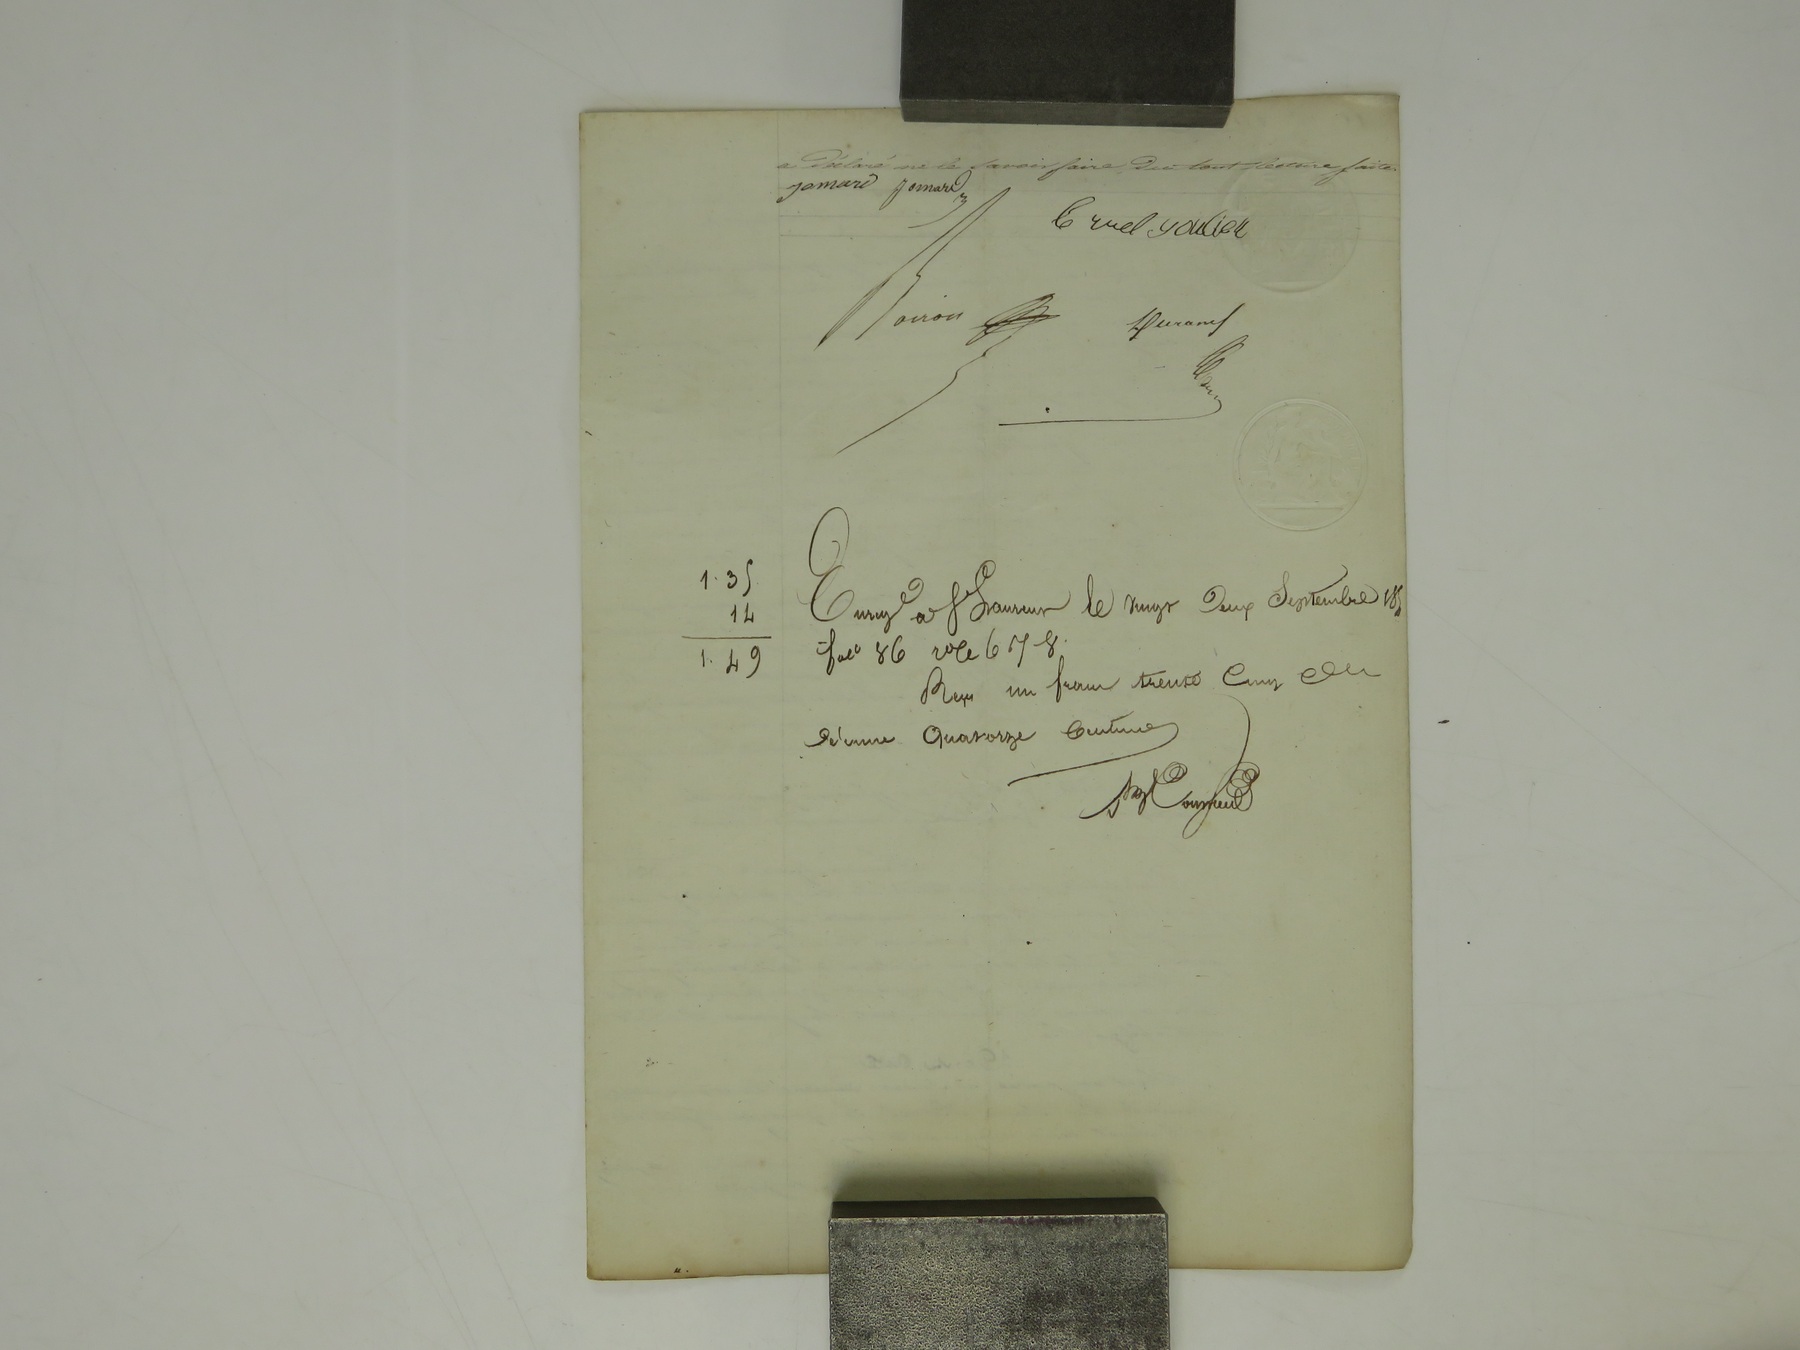 a déclaré ne le savoir faire, du tout lecture faite.
jomard jomard
Cruel
Boiron Durand
1.35
14
1.49
Enreg à St le vingt deux Septembre 18
fol 86 6 7 8.
Reçu un franc trente Cinq
décime Quatorze Centimes